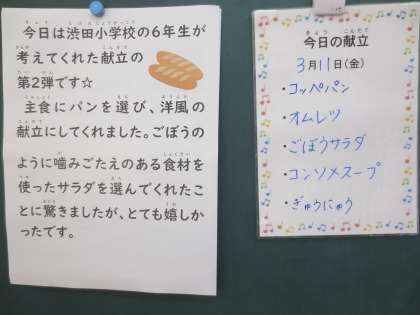 今日は渋田小学校の6年生が
考えてくれた献立の
第2弾です☆
主食にパンを選び、洋風の
献立にしてくれました。ごぼうの
ように噛みごたえのある食材を
使ったサラダを選んでくれたこ
とに驚きましたが、とても嬉しか
ったです。
今日の献立
3月11日(金)
・コッペパン
・オムレツ
・ごぼうサラダ
・コンソメスープ
・ぎゅうにゅう